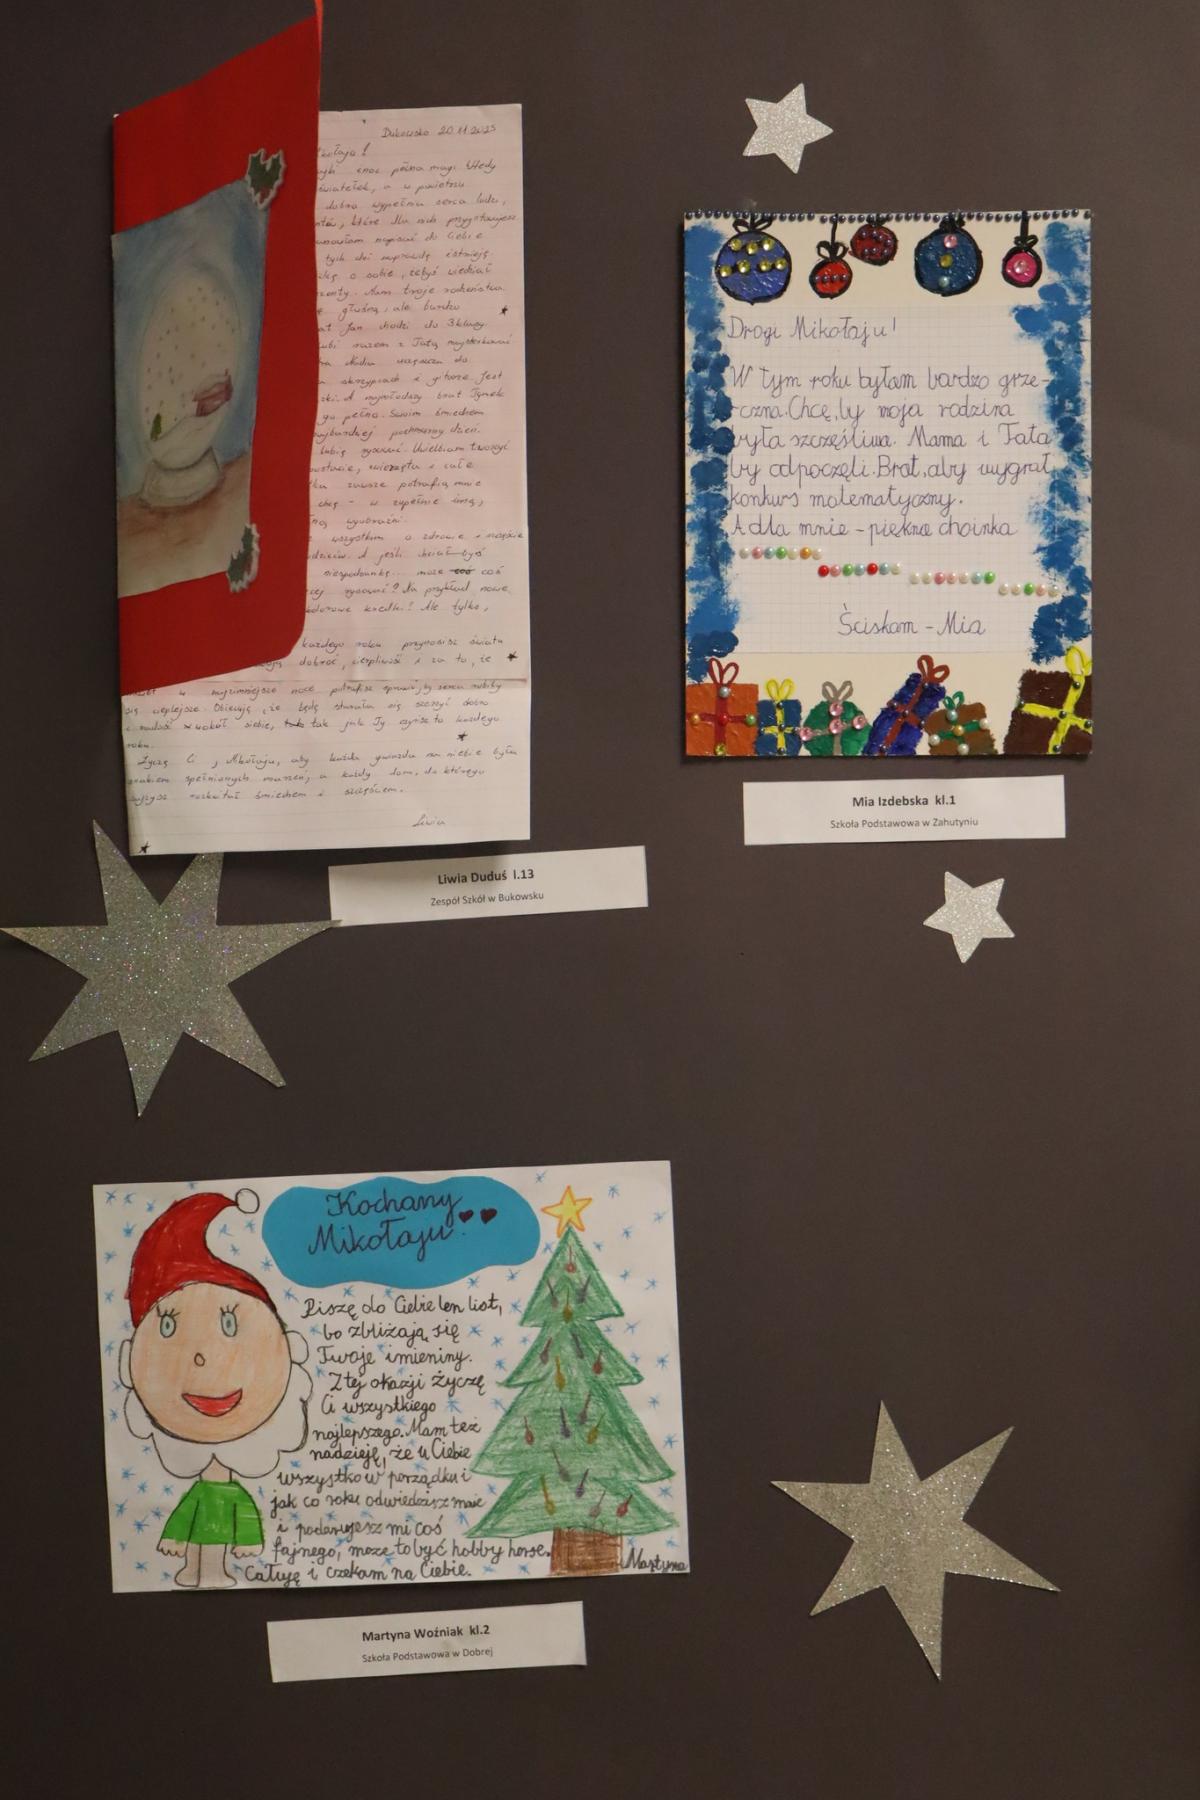 Bukowsko 20.11.2025
pełna magii. Wtedy
światełek, a w powietrzu
dobra wypełnia serca ludzi,
które dla nich przygotowujesz
napisać do Ciebie
tych dni naprawdę istnieją.
o sobie, żebyś wiedział
Mam troje rodzeństwa.
głośną, ale bardzo
Jan chodzi do 3 klasy.
lubi razem z Tatą majsterkować
Nadia uczęszcza do
skrzypcach i gitarze. Jest
A najmłodszy brat Ignaś
go pełno. Swoim śmiechem
najbardziej pochmurny dzień.
lubię rysować. Uwielbiam tworzyć
zwierzęta i całe
zawsze potrafią mnie
chcę - w zupełnie inną,
wyobraźni.
wszystkim o zdrowie i szczęście
A jeśli chciałbyś
niespodziankę... może coś
rysować? Na przykład nowe
kolorowe kredki? Ale tylko,
każdego roku przynosisz światu
dobroć, cierpliwość i za to, że
w najzimniejsze noce potrafisz sprawić, by serca robiły
się cieplejsze. Obiecuję, że będę starała się szerzyć dobro
i radość wokół siebie, tak jak Ty czynisz to każdego
roku.
Życzę Ci, Mikołaju, aby każda gwiazda na niebie była
znakiem spełnionych marzeń, a każdy dom, do którego
zajrzysz rozkwitał śmiechem i szczęściem.
Liwia
Liwia Duduś l.13
Zespół Szkół w Bukowsku
Drogi Mikołaju!
W tym roku byłam bardzo grze-
czna. Chcę, by moja rodzina
była szczęśliwa. Mama i Tata
by odpoczęli. Brat, aby wygrał
konkurs matematyczny.
A dla mnie - piękna choinka
Ściskam - Mia
Mia Izdebska kl.1
Szkoła Podstawowa w Zahutyniu
Kochany
Mikołaju!
Piszę do Ciebie ten list,
bo zbliżają się
Twoje imieniny.
Z tej okazji życzę
Ci wszystkiego
najlepszego. Mam też
nadzieję, że u Ciebie
wszystko w porządku i
jak co roku odwiedzisz mnie
i podarujesz mi coś
fajnego, może to być hobby horse.
Całuję i czekam na Ciebie.
Martyna
Martyna Woźniak kl.2
Szkoła Podstawowa w Dobrej